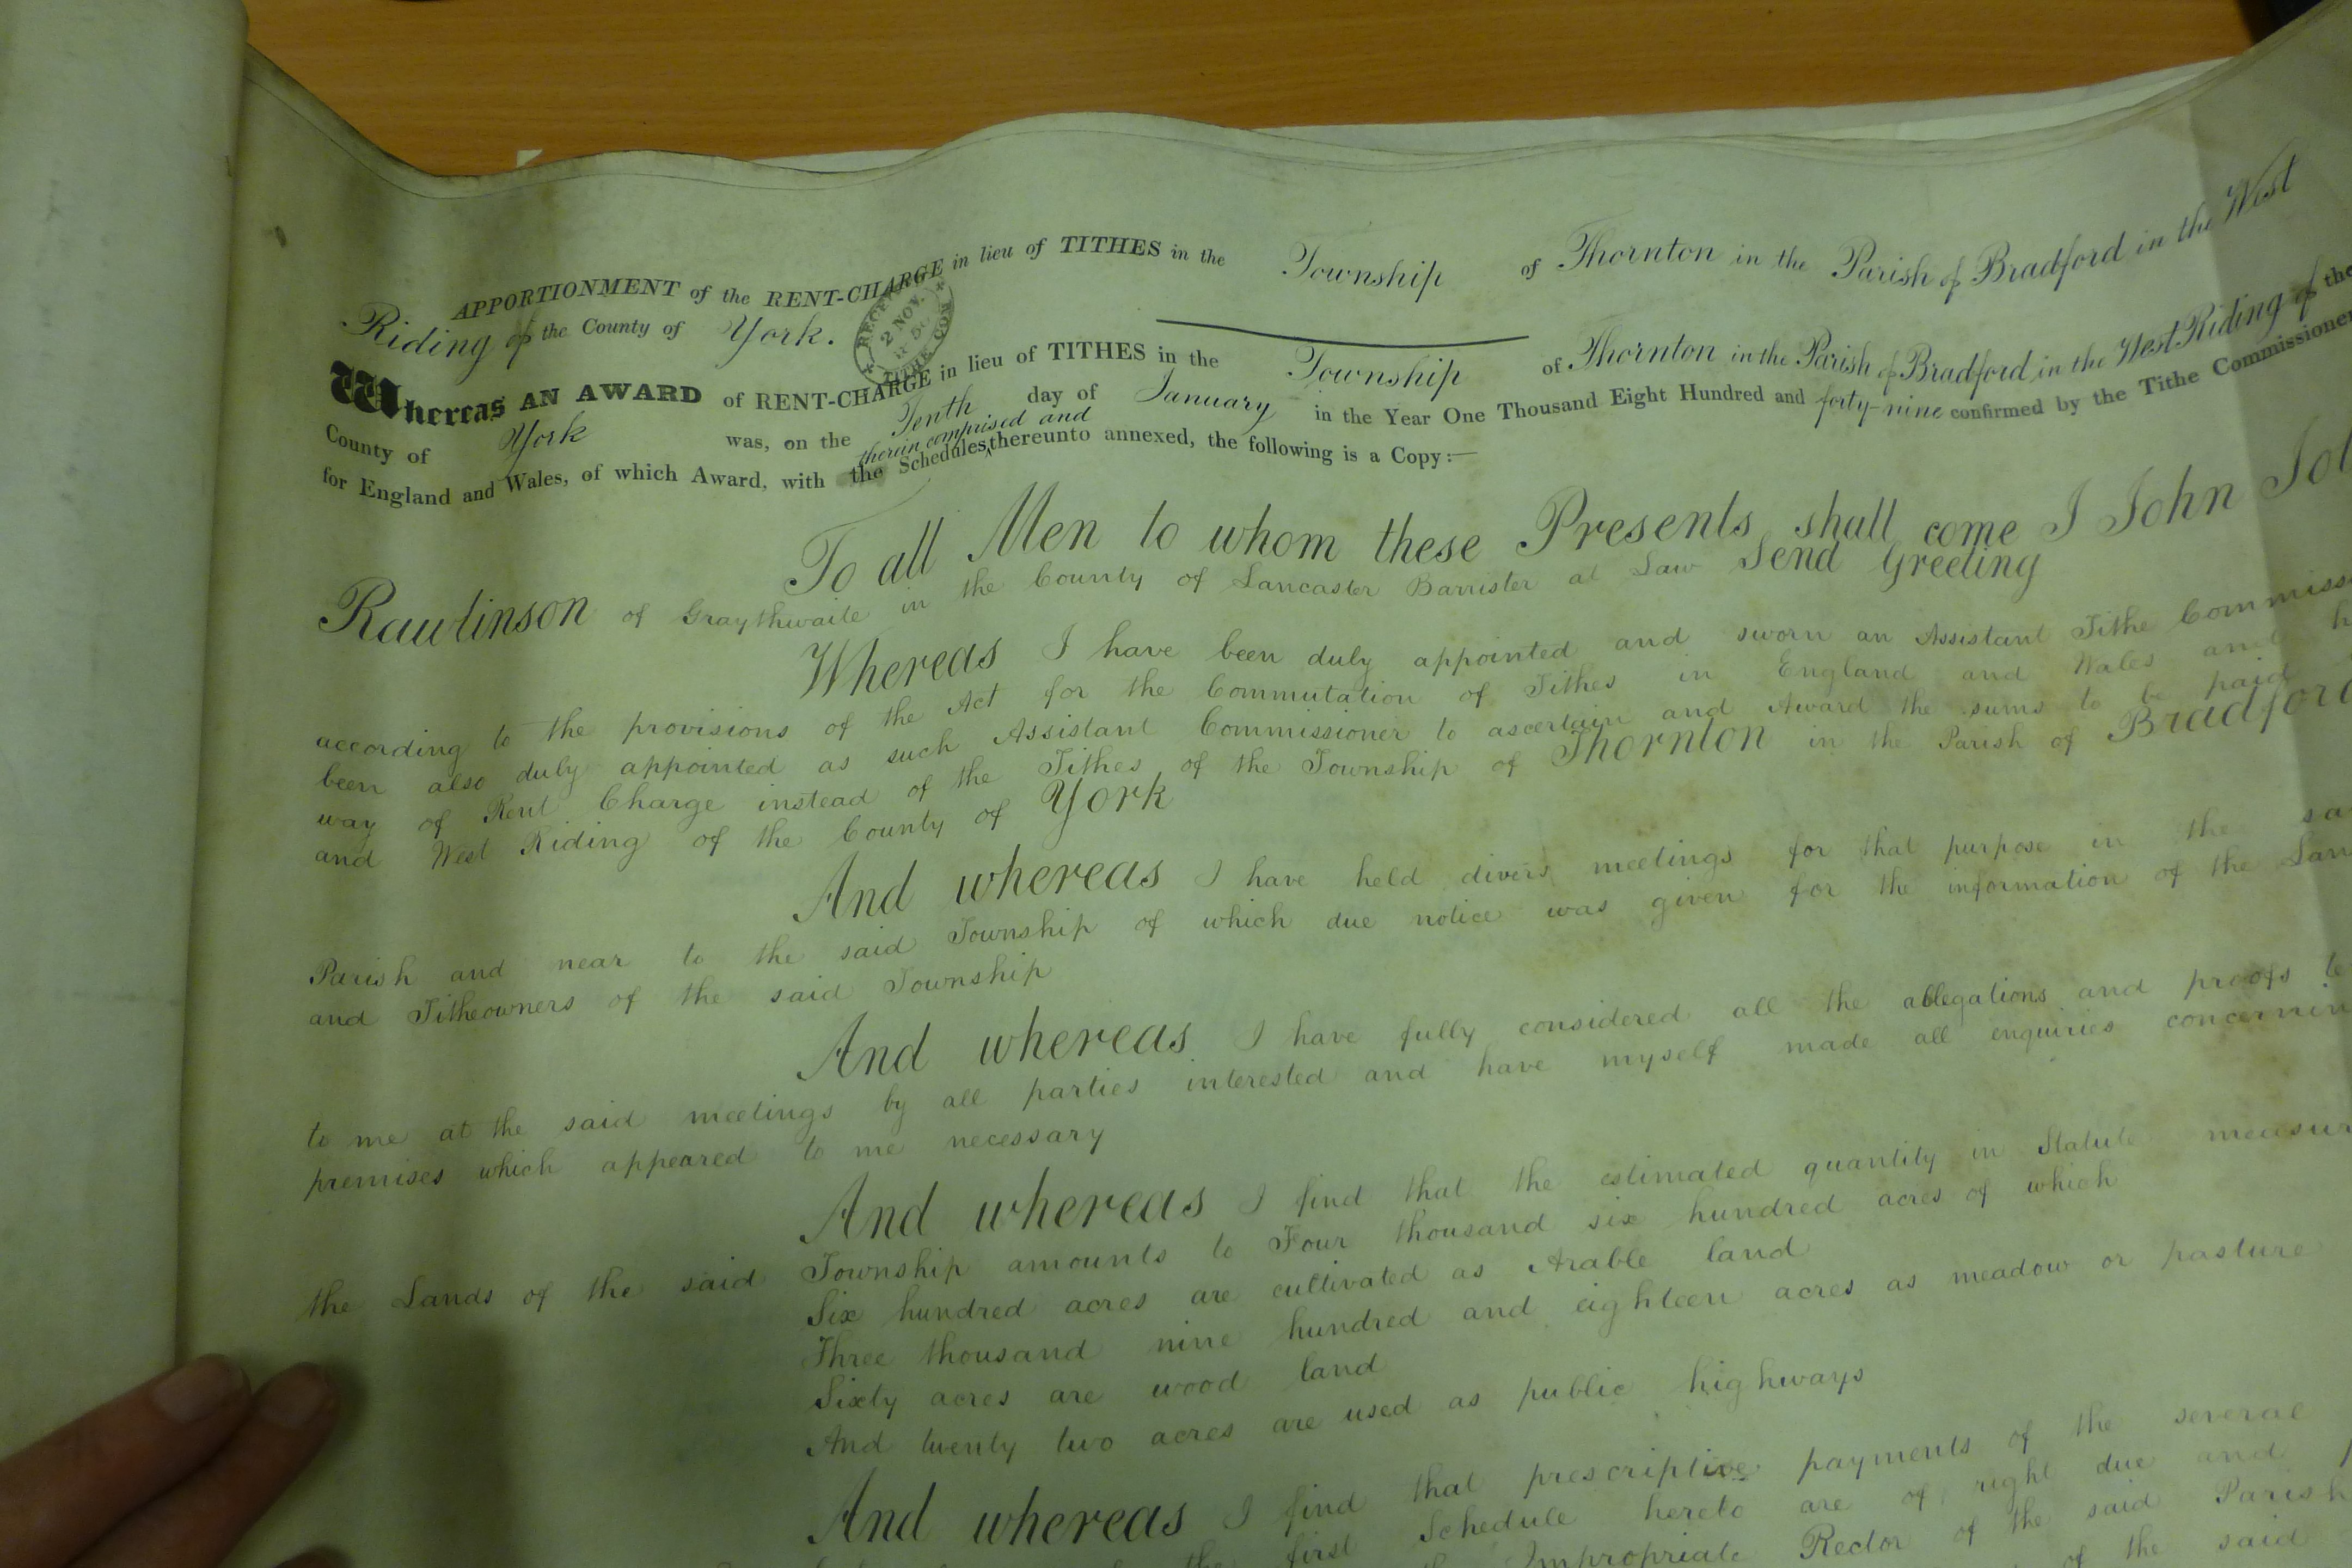 APPORTIONMENT of the RENT-CHARGE in lieu of TITHES in the Township of Thornton in the Parish of Bradford in the West
Riding of the County of York.
2 NOV.
TITHE COM
Whereas AN AWARD of RENT-CHARGE in lieu of TITHES in the Township of Thornton in the Parish of Bradford in the West Riding of the
County of York was, on the Tenth day of January in the Year One Thousand Eight Hundred and forty-nine confirmed by the Tithe Commissioner
therein comprised and
for England and Wales, of which Award, with the Schedules thereunto annexed, the following is a Copy:—
To all Men to whom these Presents shall come I John
Rawlinson of Graythwaite in the County of Lancaster Barrister at Law Send Greeting
Whereas I have been duly appointed and sworn an Assistant Tithe Commiss
according to the provisions of the Act for the Commutation of Tithes in England and Wales and h
been also duly appointed as such Assistant Commissioner to ascertain and Award the sums to be paid
way of Rent Charge instead of the Tithes of the Township of Thornton in the Parish of Bradford
and West Riding of the County of York
And whereas I have held divers meetings for that purpose in the sa
Parish and near to the said Township of which due notice was given for the information of the Lan
and Titheowners of the said Township
And whereas I have fully considered all the allegations and proofs te
to me at the said meetings by all parties interested and have myself made all enquiries concernin
premises which appeared to me necessary
And whereas I find that the estimated quantity in Statute measur
the Lands of the said Township amounts to Four thousand six hundred acres of which
Six hundred acres are cultivated as Arable land
Three thousand nine hundred and eighteen acres as meadow or pasture
Sixty acres are wood land
And twenty two acres are used as public highways
And whereas I find that prescriptive payments of the several
the first Schedule hereto are of right due and p
Impropriate Rector of the said Parish
of the said